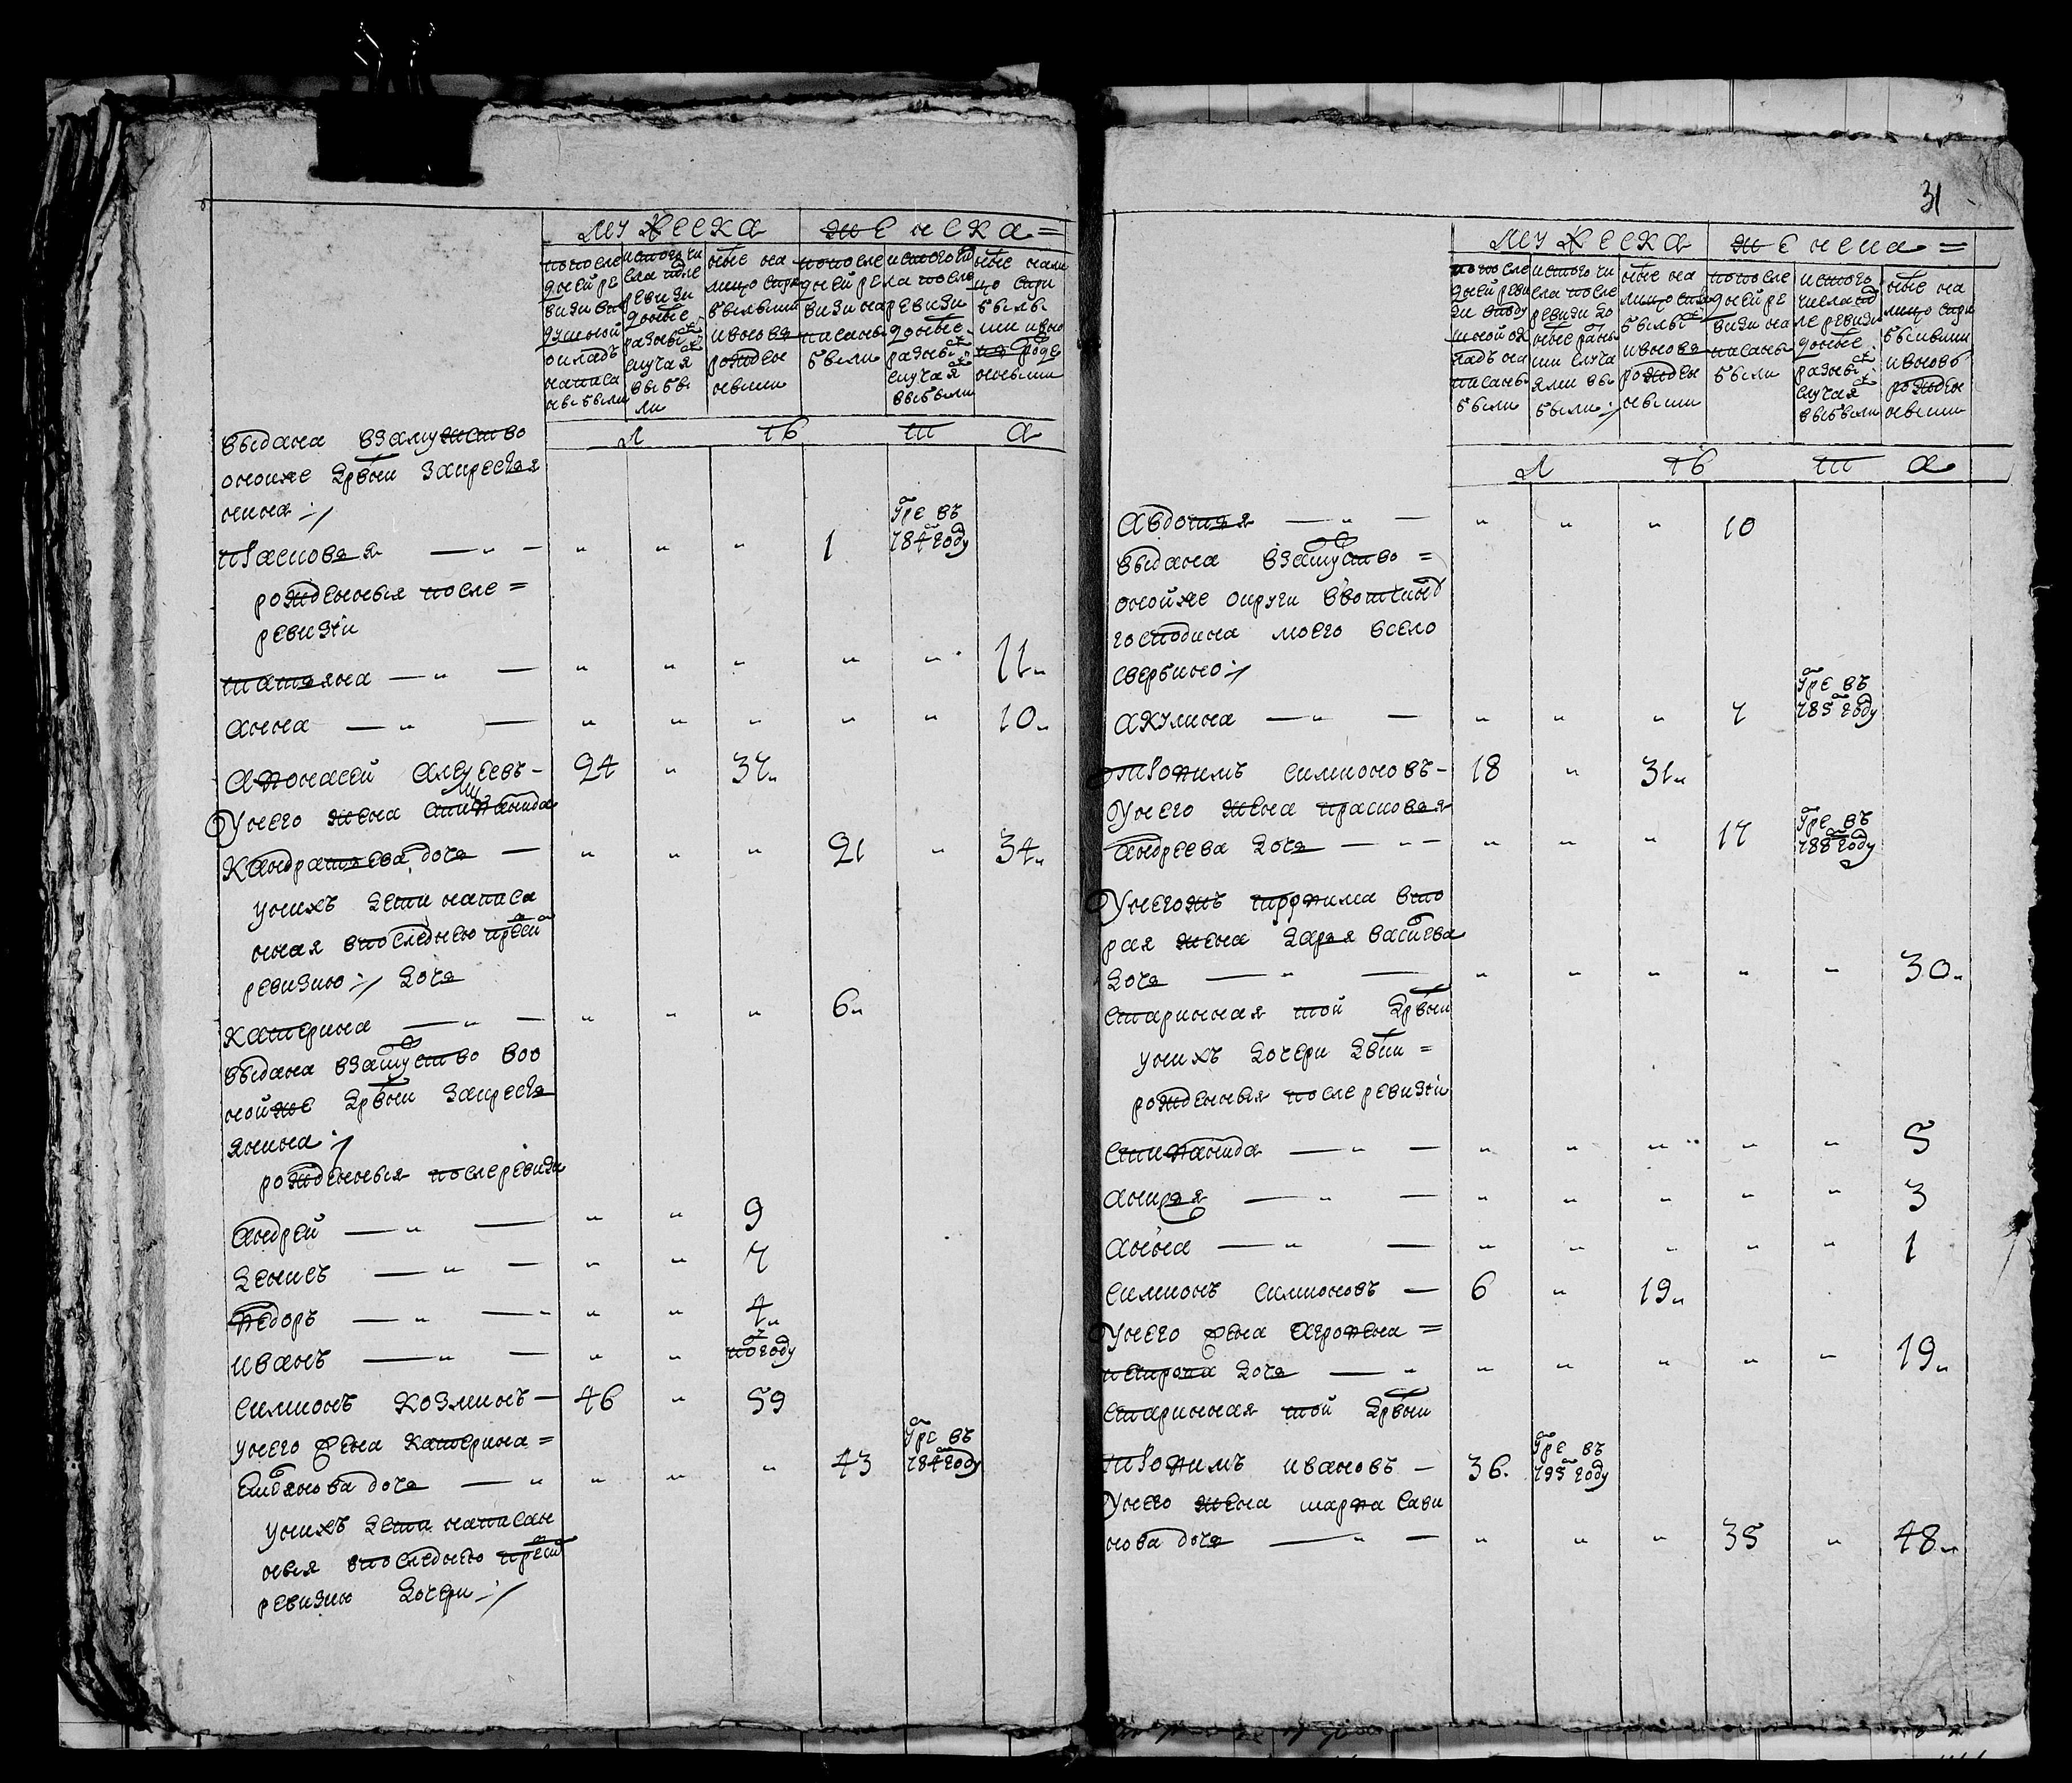 мужеска женска =
по после
дней ре
визии въ
душной
окладъ
написа
ны были
ис того чи
сла после
ревизи
до ныне
разными
случая
выбы
ли
ныне на
лицо с при
бывшими
и вновь
рожден
ными
по после
дней ре
визи на
писаны
были
ис того чи
ла после
ревизи
до ныне
разными
случая
выбыли
ныне на ли
цо с при
бывы
ми и вно
рожде
ными
Л тъ т а
выдана взамужство
оной же Дрвни за кресья
нина :/
Прасковья — „ — „ „ „ 1 Умре въ 784 году
рожденныя после =
ревизiи
татьяна — „ — „ „ „ „ „ 11„
анна — „ — „ „ „ „ „ 10„
Афонасей Алексеевъ — 24 „ 37„
У него жена Степанида
Кандратьева дочь — „ „ „ 21 „ 34„
у нихъ дети написа
ная в последнею пред сей
ревизию :/ дочь
Катерина — „ — „ „ „ 6„
выдана взамужство во о
ной же Дрвни за кресть
янина :/
рожденныя после ревизи
Андрей — „ — „ „ 9
Денисъ — „ — „ „ 7
Федоръ — „ — „ „ 4„
Иванъ — „ — „ „ полгоду
Симионъ Козминъ — 46 „ 59
у него жена Катерина =
Емельянова дочь — „ „ „ „ 43 Умре въ 784 году
у нихъ дети написан
ныя в последнею пред сей
ревизию дочери :/
31
мужеска женска =
по после
дней реви
зи в поду
шной ок
ладъ на
писаны
были
ис того чи
сла после
ревизи до
ныне разны
ми случа
ями вы
были :/
ныне на
лицо с при
бывыми
и вновь
рожден
ными
по после
дней ре
визи на
писаны
были
ис того
числа после
ревизи
до ныне
разными
случая
выбыли
ныне на
лицо с при
бывшими
и вновь
рожден
ными
Л тъ т а
Авдотья — „ — „ „ „ 10
выдана взамужство =
оной же округи в вотчину
господина моего в село
Сверькино :/
Акулина — „ — „ „ „ 7 Умре въ 785 году
Трофимъ Симионовъ — 18 „ 31„
У него жена Прасковья
Андреева дочь — „ — „ „ „ 17 Умре въ 788 году
У негожъ Трофима вто
рая жена Дарья Васильева
дочь — „ — „ „ „ „ „ 30„
старинная той Дрвни
у нихъ дочери дети =
рожденныя после ревизiи
Степанида — „ — „ „ „ „ „ 5
— „ — „ „ „ „ „ 3
Анна — „ — „ „ „ „ „ 1
Симионъ Симионовъ — 6 „ 19„
У него жена Агрофена =
Петрова дочь — „ „ „ „ „ „ 19„
старинная той Дрвни
Трофимъ Ивановъ — 36. Умре въ 795 году
У него жена Марфа Сави
нова дочь — „ — „ „ „ 35 „ 48„